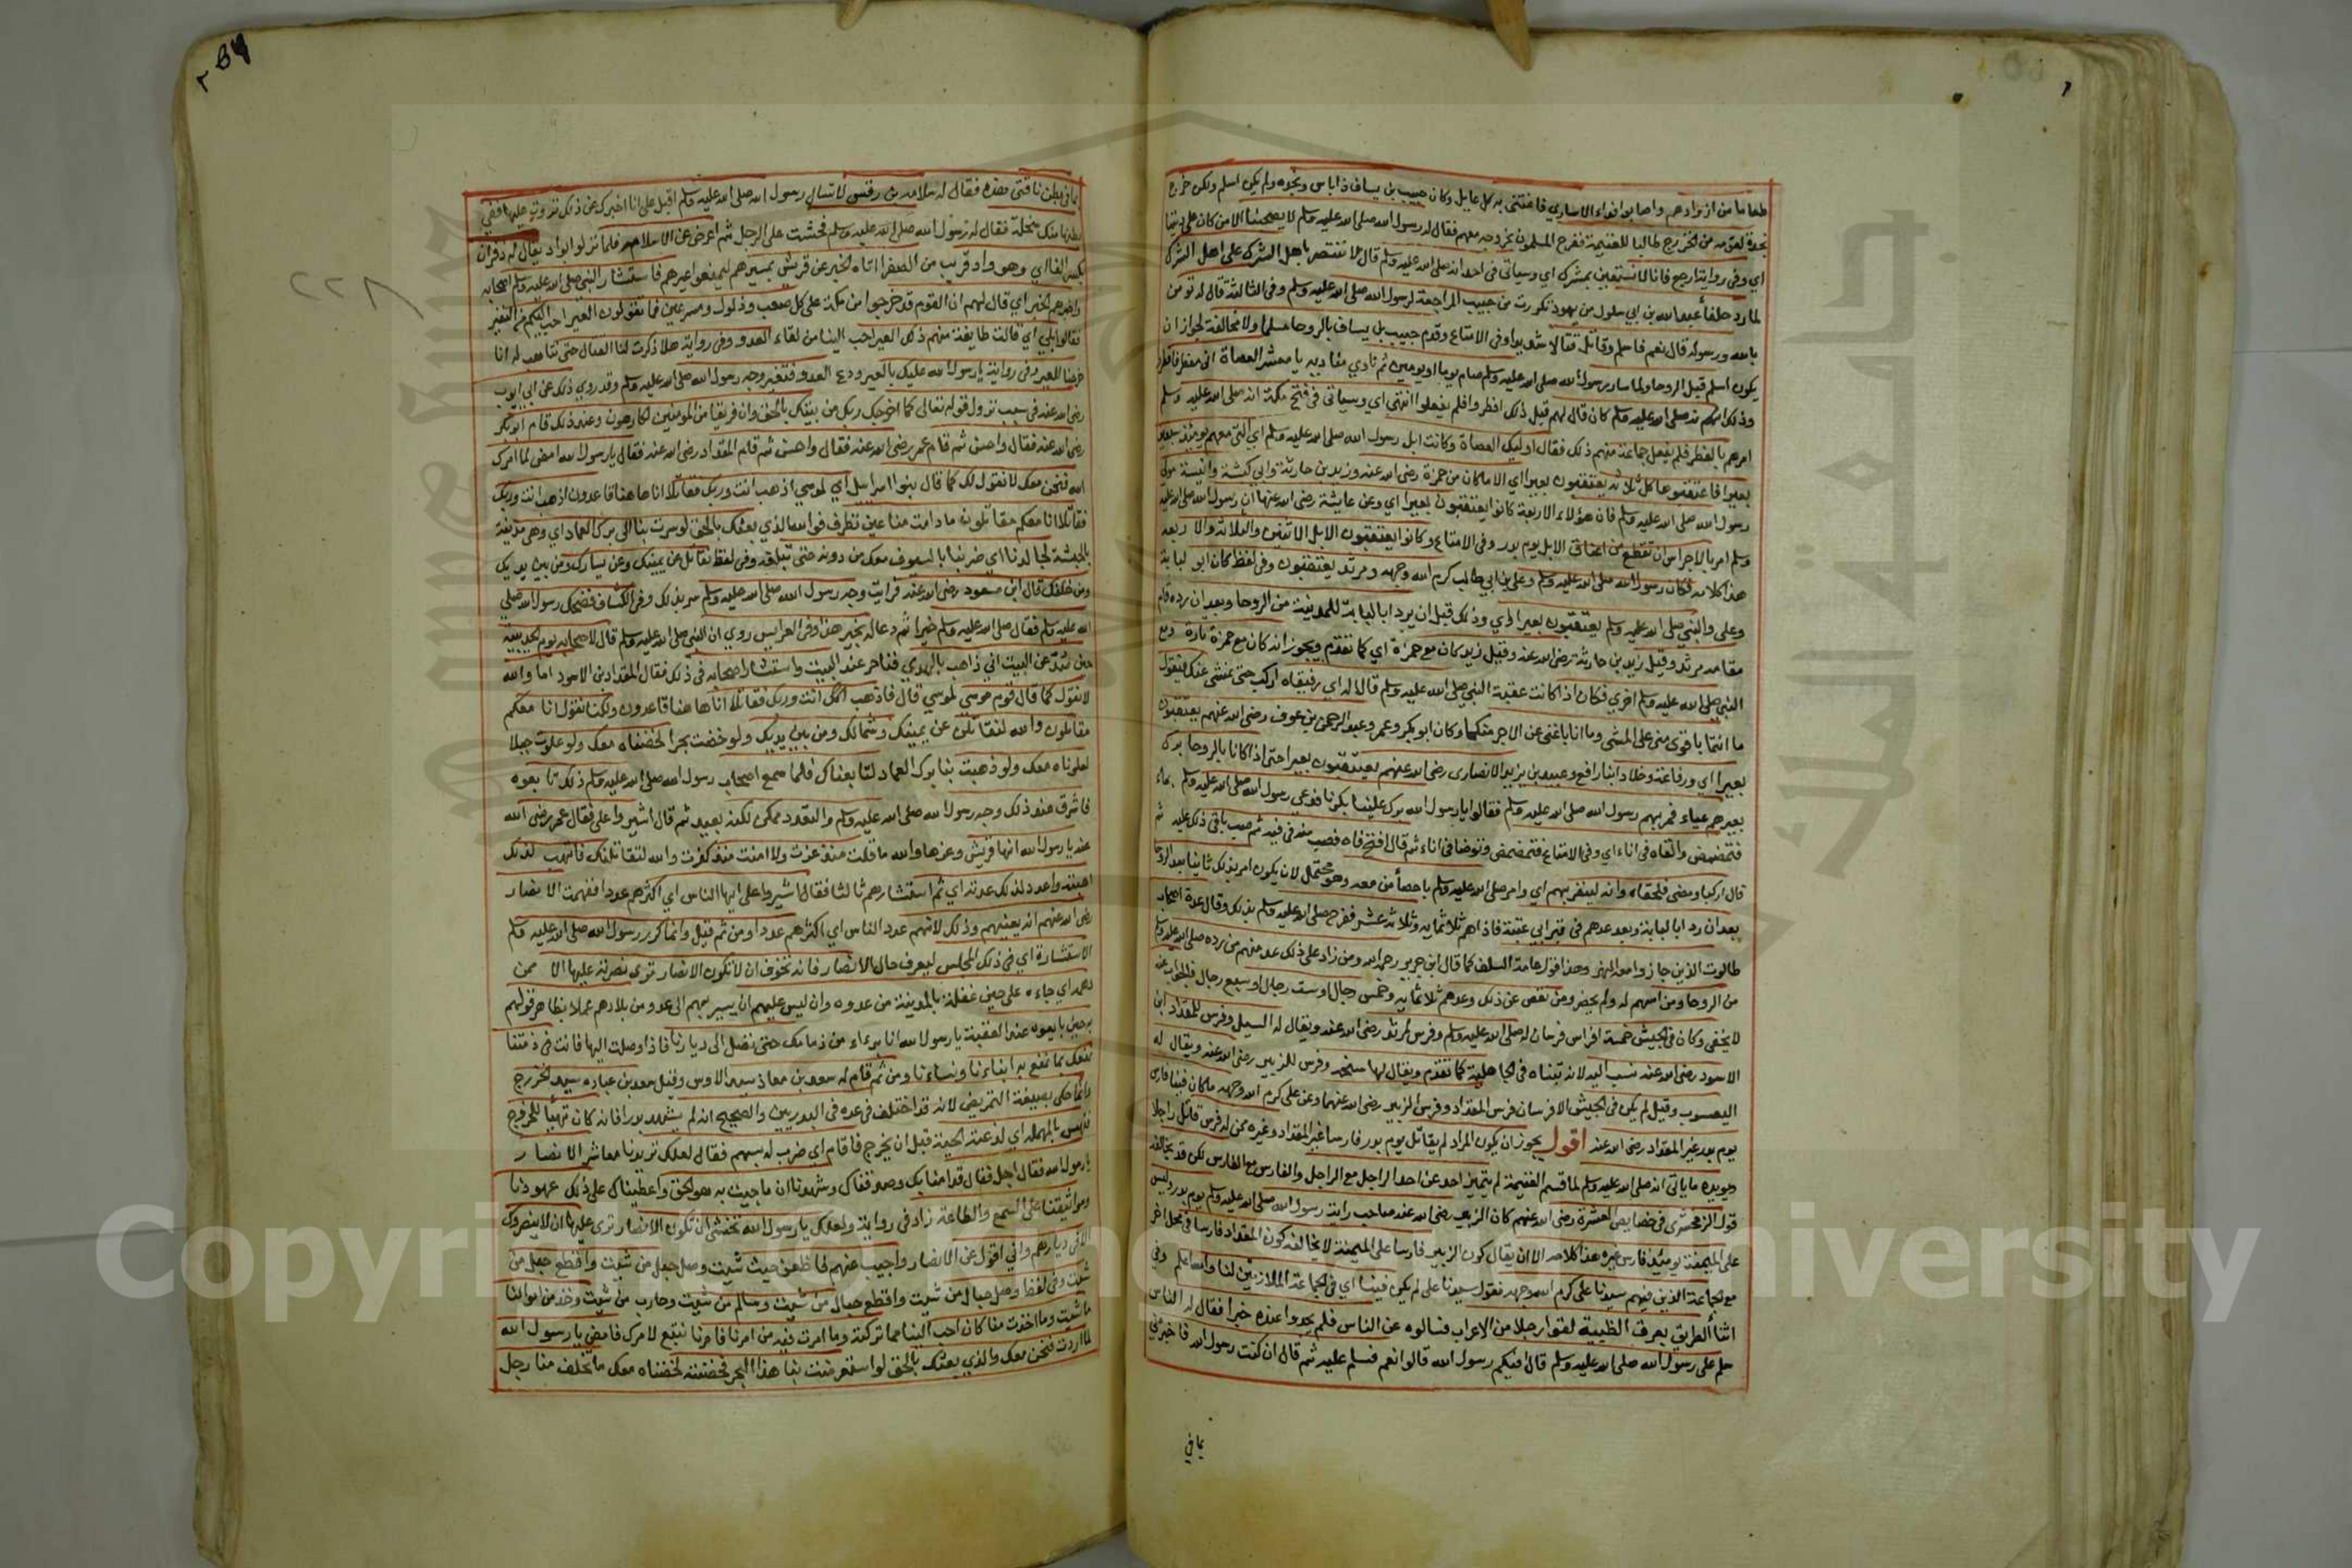 طعاما من ازوادهم واصابوا فداء الاساري فاغتنى به كل عايل وكان حبيب بن يساف ذا باس ونجده ولم يكن اسلم ولكن خرج
نجدة لقومه من الخزرج طالبا للغنيمة ففرح المسلمون بخروجه معهم فقال له رسول الله صلى الله عليه وسلم لا يصحبنا الا من كان على ديننا
اي وفي رواية ارجع فانا لا نستعين بمشرك اي وسياتي في احد انه صلى الله عليه وسلم قال لا ننتصر باهل الشرك على اهل الشرك
لما رد حلفاء عبد الله بن ابي سلول من يهود تكررت من حبيب المراجعة لرسول الله صلى الله عليه وسلم وفي الثالثة قال له تومن
بالله ورسوله قال نعم فاسلم وقاتل قتالا شديدا وفي الامتاع وقدم حبيب بن يساف بالروحا مسلما ولا مخالفة لجواز ان
يكون اسلم قبل الروحا ولما سار رسول الله صلى الله عليه وسلم صام يوما او يومين ثم نادي مناديه يا معشر العصاة اني مفطر فافطروا
وذلك انه صلى الله عليه وسلم كان قال لهم قبل ذلك افطروا فلم يفعلوا انتهى اي وسياتي في فتح مكة انه صلى الله عليه وسلم
امرهم بالفطر فلم يفعل جماعة منهم ذلك فقال اوليك العصاة وكانت ابل رسول الله صلى الله عليه وسلم اي التي معهم يومئذ سبعين
بعيرا فاعتقبوها كل ثلاثة يعتقبون بعيرا اي الا ما كان من حمزة رضى الله عنه وزيد بن حارثة وابي كبشة وانيسة مولى
رسول الله صلى الله عليه وسلم فان هؤلاء الاربعة كانوا يعتقبون بعيرا اي وعن عايشة رضى الله عنها ان رسول الله صلى الله عليه
وسلم امر بالاجراس ان تقطع من اعناق الابل يوم بدر وفي الامتاع وكانوا يعتقبون الابل الاثنين والثلاثة والاربعه
هذا كلامه فكان رسول الله صلى الله عليه وسلم وعلي بن ابي طالب كرم الله وجهه ومرثد يعتقبون وفي لفظ كان ابو لبابة
وعلي والنبي صلى الله عليه وسلم يعتقبون بعيرا اي وذلك قبل ان يرد ابا لبابة للمدينة من الروحا وبعد ان رده قام
مقامه مرثد وقيل زيد بن حارثة رضى الله عنه وقيل زيد كان مع حمزة اي كما تقدم ويجوز انه كان مع حمزة تارة ومع
النبي صلى الله عليه وسلم اخري فكان اذا كانت عقبة النبي صلى الله عليه وسلم قالا له اي رفيقاه اركب حتى نمشى عنك فيقول
ما انتما باقوى مني على المشي وما انا باغنى عن الاجر منكما وكان ابو بكر وعمر وعبد الرحمن بن عوف رضى الله عنهم يعتقبون
بعيرا اي ورفاعة وخلاد ابنا رافع وعبيد بن يزيد الانصاري رضى الله عنهم يعتقبون بعيرا حتى اذا كانا بالروحا برك
بعيرهم عياء فمر بهم رسول الله صلى الله عليه وسلم فقالوا يا رسول الله برك علينا بكرنا فدعى رسول الله صلى الله عليه وسلم بماء
فتمضمض والقاه في اناء اي وفي الامتاع فتمضمض وتوضا في اناء ثم قال افتح فاه فصب منه في فيه ثم صب باقي ذلك عليه ثم
قال اركبا ومضى فلحقاه وانه لينفر بهم اي وامر صلى الله عليه وسلم باحصاء من معه وهو محتمل لان يكون امر بذلك ثانيا بعد الروحا
بعد ان رد ابا لبابة وبعد عدهم في بير ابي عتبة فاذاهم ثلاثماية وثلاثة عشر ففرح صلى الله عليه وسلم بذلك وقال عدة اصحاب
طالوت الذين جازوا معه النهر وهذا قول عامة السلف كما قال ابن جرير رحمه الله ومن زاد على ذلك عد منهم من رده صلى الله عليه وسلم
من الروحا ومن اسهم له ولم يحضر ومن نقص عن ذلك وعدهم ثلاثماية وخمس رجال او ست رجال او سبع رجال فالجواب عنه
لا يخفى وكان في الجيش خمسة افراس فرسان له صلى الله عليه وسلم وفرس لمرثد رضى الله عنه ويقال له السيل وفرس للمقداد ابن
الاسود رضى الله عنه نسب اليه لانه تبناه في الجاهلية كما تقدم ويقال لها سبحه وفرس للزبير رضى الله عنه ويقال له
اليعسوب وقيل لم يكن في الجيش الا فرسان فرس المقداد وفرس الزبير رضى الله عنهما وعن علي كرم الله وجهه ما كان فينا فارس
يوم بدر غير المقداد رضى الله عنه اقول يجوز ان يكون المراد لم يقاتل يوم بدر فارسا غير المقداد وغيره ممن له فرس قاتل راجلا
ويويده ما ياتي انه صلى الله عليه وسلم لما قسم الغنيمة لم يتميز احد عن احد الراجل مع الراجل والفارس مع الفارس لكن قد يخالفه
قول الزمخشري في خصايص العشرة رضى الله عنهم كان الزبير رضى الله عنه صاحب راية رسول الله صلى الله عليه وسلم يوم بدر وليس
على الميمنة يومئذ فارس غيره هذا كلامه الا ان يقال كون الزبير فارسا على الميمنة لا يخالف كون المقداد فارسا في محل اخر
مع الجماعة الذين فيهم سيدنا علي كرم الله وجهه فقول سيدنا علي لم يكن فينا اي في الجماعة الملازمين لنا والله اعلم وفي
اثناء الطريق بعرق الظبية لقوا رجلا من الاعراب فسالوه عن الناس فلم يجدوا عنده خبرا فقال له الناس
سلم على رسول الله صلى الله عليه وسلم قال افيكم رسول الله قالوا نعم فسلم عليه ثم قال ان كنت رسول الله فاخبرني
بما في
بما في بطن ناقتي هذه فقال له سلامه بن رقس لا تسال رسول الله صلى الله عليه وسلم اقبل على انا اخبرك عن ذلك نزوت عليها ففي
بطنها منك سخلة فقال له رسول الله صلى الله عليه وسلم فحشت على الرجل ثم اعرض عن سلامه فلما نزلوا بواد يقال له ذفران
بكسر الفا اي وهو واد قريب من الصفرا اتاه الخبر عن قريش بمسيرهم ليمنعوا عيرهم فاستشار النبي صلى الله عليه وسلم اصحابه
واخبرهم الخبر اي قال لهم ان القوم قد خرجوا من مكة على كل صعب وذلول ومسرعين فما تقولون العير احب اليكم من النفير
فقالوا بلى اي قالت طايفة منهم ذلك العير احب الينا من لقاء العدو وفي رواية هلا ذكرت لنا القتال حتى نتاهب له انا
خرجنا للعير وفي رواية يا رسول الله عليك بالعير ودع العدو فتغير وجه رسول الله صلى الله عليه وسلم وقد روي ذلك عن ابي ايوب
رضى الله عنه في سبب نزول قوله تعالى كما اخرجك ربك من بيتك بالحق وان فريقا من المومنين لكارهون وعند ذلك قام ابو بكر
رضى الله عنه فقال واحسن ثم قام عمر رضى الله عنه فقال واحسن ثم قام المقداد رضى الله عنه فقال يا رسول الله امض لما امرك
الله فنحن معك لا نقول لك كما قال بنوا اسراييل اي لموسي اذهب انت وربك فقاتلا انا هاهنا قاعدون اذهب انت وربك
فقاتلا انا معكم مقاتلون ما دامت منا عين تطرف فوالله الذي بعثك بالحق لو سرت بنا الى برك الغماد اي وهي مدينة
بالحبشة لجالدنا اي ضربنا بالسيوف معك من دونه حتى تبلغه وفي لفظ نقاتل عن يمينك وعن يسارك ومن بين يديك
ومن خلفك قال ابن مسعود رضى الله عنه فرايت وجه رسول الله صلى الله عليه وسلم سر بذلك وفي الكشاف فضحك رسول الله صلى
الله عليه وسلم فقال صلى الله عليه وسلم خيرا ثم دعا له بخير هذا وفي العرايس روي ان النبي صلى الله عليه وسلم قال لاصحابه يوم الحديبية
حين صد عن البيت اني ذاهب بالهدي فناحر عند البيت واستشار اصحابه في ذلك فقال المقداد بن الاسود اما والله
لا نقول كما قال قوم موسي لموسي قال فاذهب انت وربك فقاتلا انا هاهنا قاعدون ولكنا نقول انا معكم
مقاتلون والله لنقاتلن عن يمينك وشمالك ومن بين يديك ولو خضت بحرا لخضناه معك ولو علوت جبلا
لعلوناه معك ولو ذهبت بنا برك الغماد لتابعناك فلما سمع اصحاب رسول الله صلى الله عليه وسلم ذلك تابعوه
فاشرق عند ذلك وجه رسول الله صلى الله عليه وسلم والتعدد ممكن لكنه بعيد ثم قال اشيروا على فقال عمر رضى الله
عنه يا رسول الله انها قريش وعزها والله ما ذلت منذ عزت ولا امنت منذ كفرت والله لتقاتلنك فاتهب لذلك
اهبته واعدد لذلك عدته اي ثم استشارهم ثالثا فقال اشيروا على ايها الناس اي اكثرهم عددا ففهمت الانصار
رضى الله عنهم انه يعنيهم وذلك لانهم عدد الناس اي اكثرهم عددا ومن ثم قيل وانما كرر رسول الله صلى الله عليه وسلم
الاستشارة اي في ذلك المجلس ليعرف حال الانصار فانه تخوف ان لا تكون الانصار تري نصرته عليها الا ممن
دهمه اي جاءه على حين غفلة بالمدينة من عدوه وان ليس عليهم ان يسير بهم الى عدو من بلادهم عملا بظاهر قولهم
له حين بايعوه عند العقبة يا رسول الله انا براء من ذمامك حتى تصل الى ديارنا فاذا وصلت الينا فانت في ذمتنا
نمنعك مما نمنع به ابناءنا ونساءنا ومن ثم قام له سعد بن معاذ سيد الاوس وقيل سعد بن عباده سيد الخزرج
وانما حكى بصيغة التمريض لانه قد اختلف في عده في البدريين والصحيح انه لم يشهد بدرا فانه كان تهيا للخروج
فنهس بالمهملة اي لدغته الحية قبل ان يخرج فاقام اي ضرب له بسهم فقال لعلك تريدنا معاشر الانصار
يا رسول الله فقال اجل فقال قد امنا بك وصدقناك وشهدنا ان ما جيت به هو الحق واعطيناك على ذلك عهودنا
ومواثيقنا على السمع والطاعة زاد في رواية ولعلك يا رسول الله تخشى ان تكون الانصار تري عليها ان لا ينصروك
الا في ديارهم واني اقول عن الانصار واجيب عنهم فاظعن حيث شيت وصل حبل من شيت واقطع حبل من
شيت وفي لفظ وصل حبال من شيت واقطع حبال من شيت وسالم من شيت وحارب من شيت وخذ من اموالنا
ما شيت وما اخذت منا كان احب الينا مما تركت وما امرت فيه من امر فامرنا نتبع لامرك فامض يا رسول الله
لما اردت فنحن معك والذي بعثك بالحق لو استعرضت بنا هذا البحر فخضته لخضناه معك ما تخلف منا رجل
٢٢٨
Copyright © King Saud University